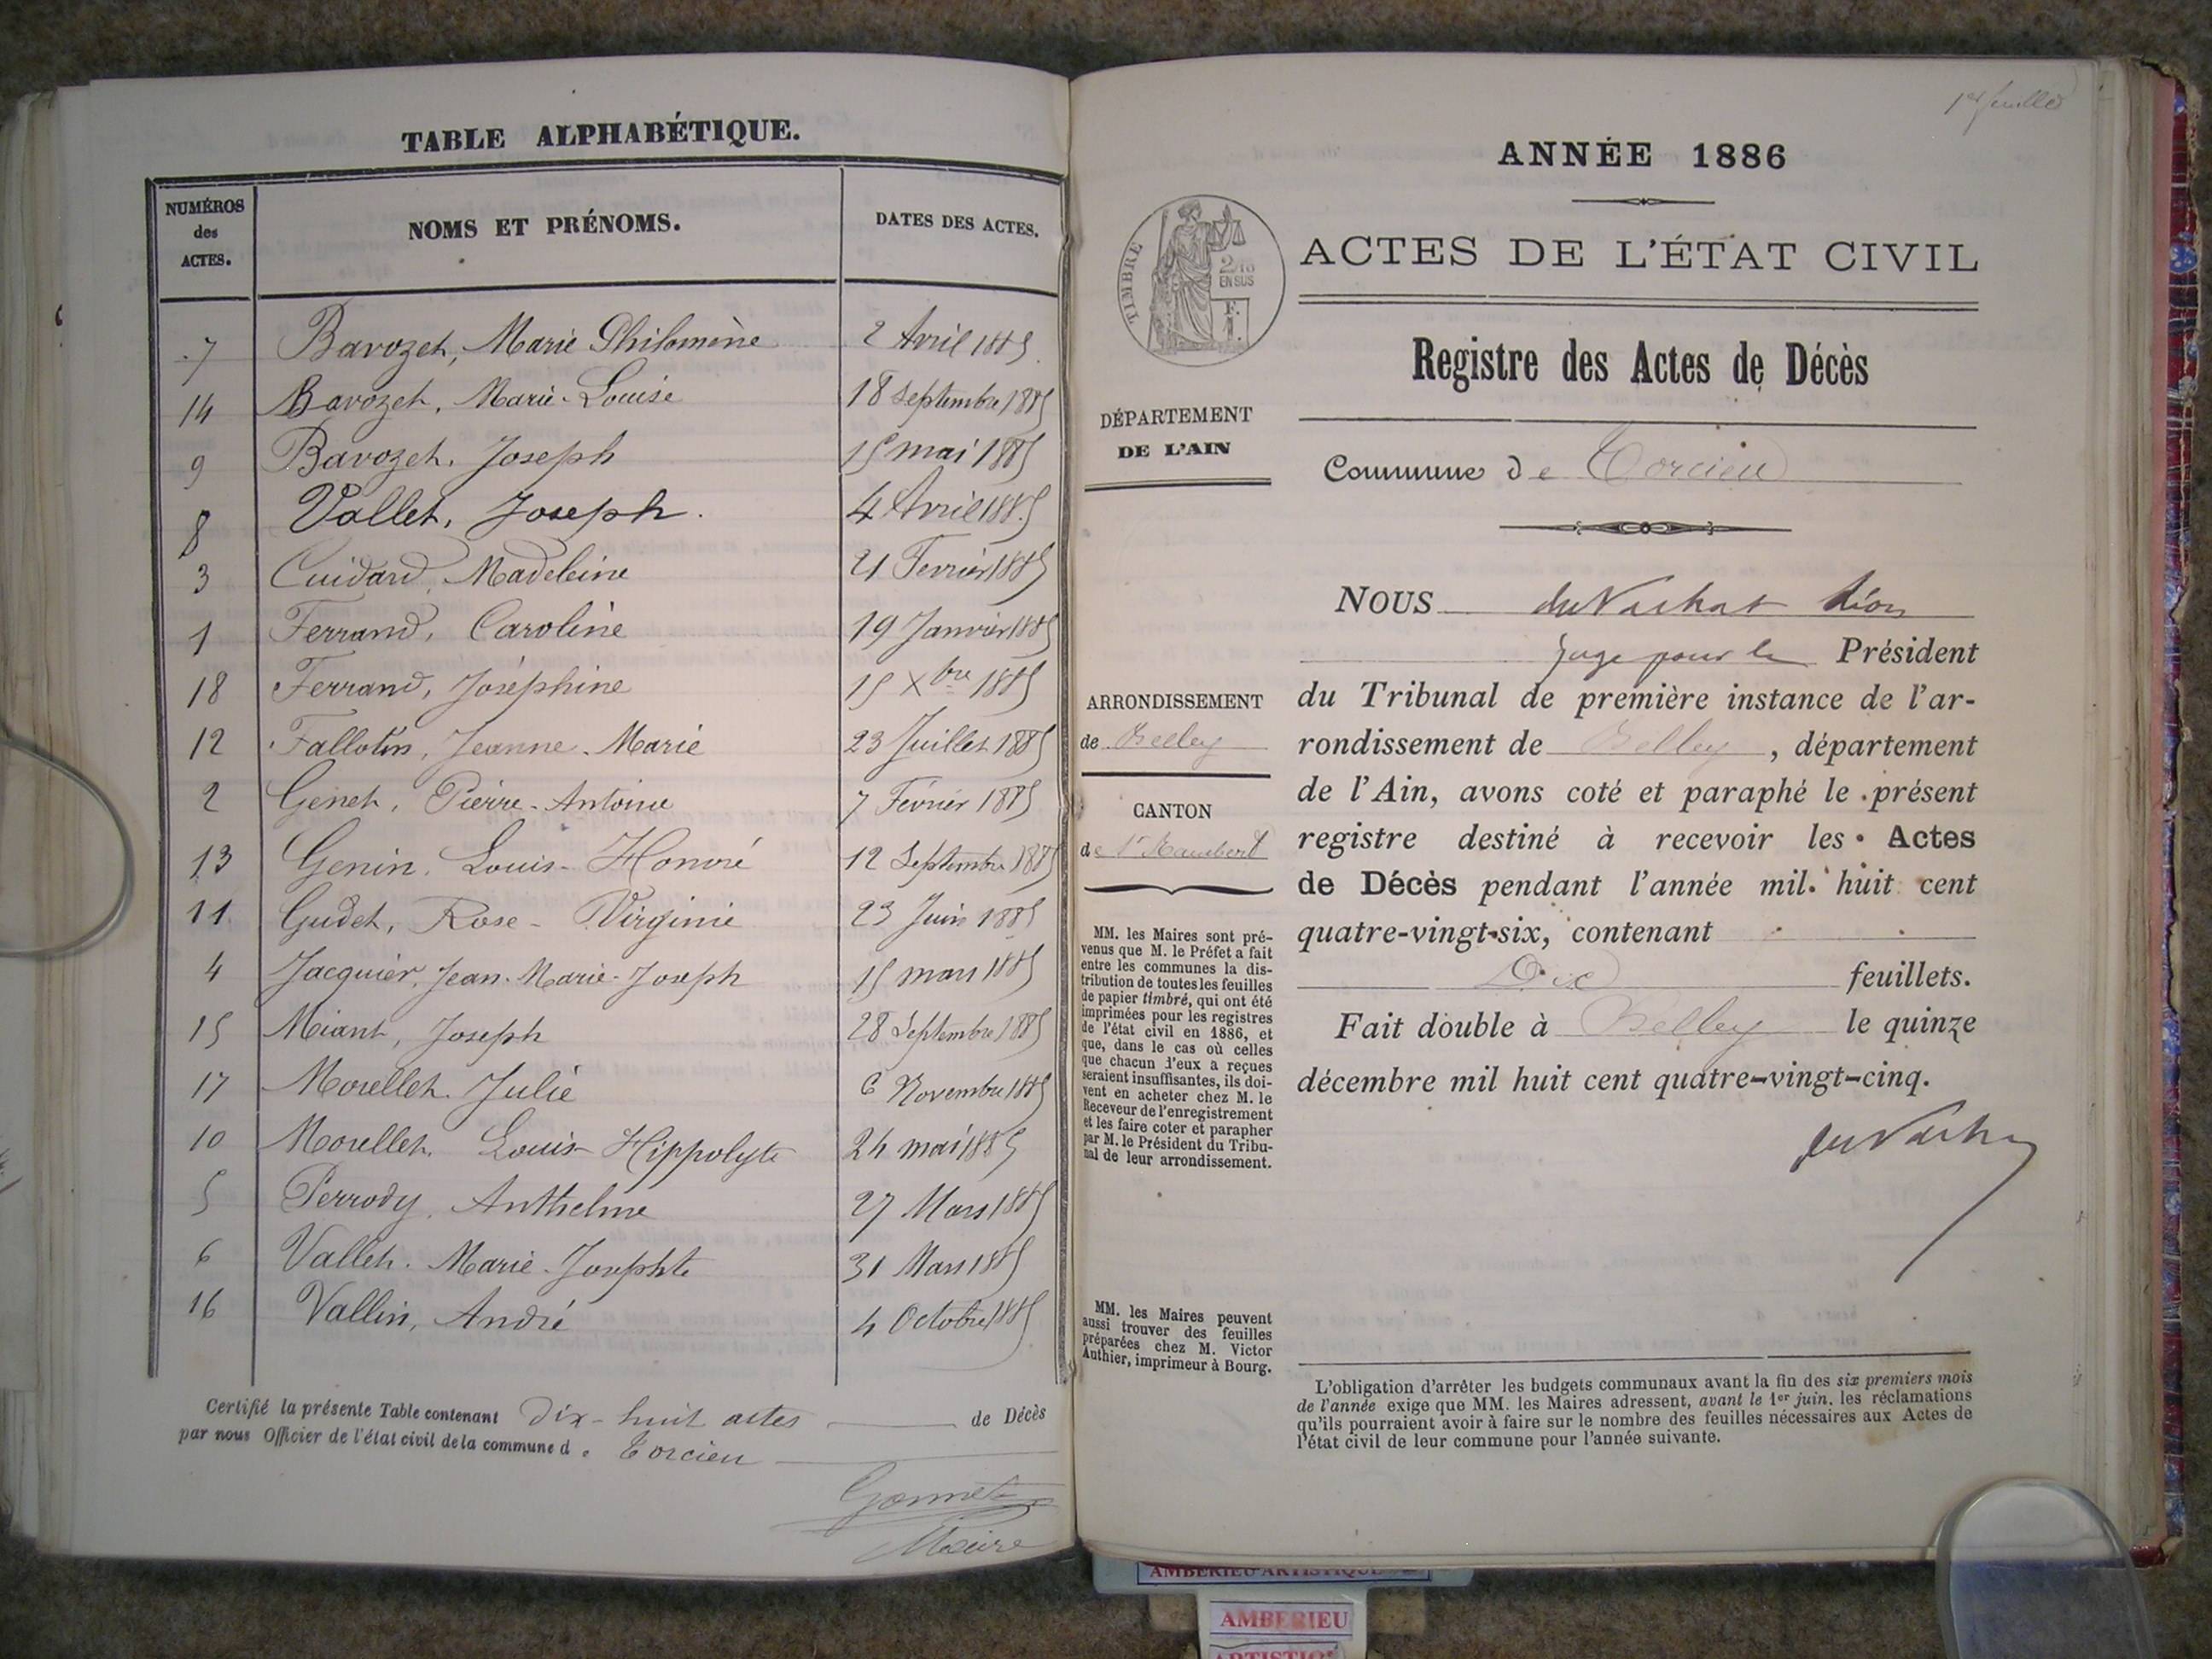 TABLE ALPHABÉTIQUE.
NUMÉROS des ACTES. NOMS ET PRÉNOMS. DATES DES ACTES.
7 Bavozet, Marie Philomène 2 Avril 1885
14 Bavozet, Marie-Louise 18 Septembre 1885
9 Bavozet, Joseph 15 mai 1885
8 Vallet, Joseph. 4 Avril 1885
3 Cuidard, Madeleine 21 Fevrier 1885
1 Ferrand, Caroline 19 Janvier 1885
18 Ferrand, Joséphine 15 Xbre 1885
12 Fallotin, Jeanne-Marie 23 Juillet 1885
2 Genet, Pierre-Antoine 7 Février 1885
13 Genin, Louis-Honoré 12 Septembre 1885
11 Gudet, Rose-Virginie 23 Juin 1885
4 Jacquier, Jean-Marie-Joseph 15 mars 1885
15 Miant, Joseph 28 Septembre 1885
17 Morellet, Julie 6 Novembre 1885
10 Morellet, Louis-Hippolyte 24 mai 1885
5 Perrody, Anthelme 27 Mars 1885
6 Vallet, Marie-Josephte 31 Mars 1885
16 Vallin, André 4 Octobre 1885
Certifié la présente Table contenant dix-huit actes de Décès
par nous Officier de l'état civil de la commune de Torcieu
Gonnet
Maire
1er feuillet
ANNÉE 1886
TIMBRE
2/10
EN SUS
F.
1.
ACTES DE L'ÉTAT CIVIL
Registre des Actes de Décès
DÉPARTEMENT
DE L'AIN
Commune de Torcieu
ARRONDISSEMENT
de Belley
CANTON
de St Rambert
MM. les Maires sont pré-
venus que M. le Préfet a fait
entre les communes la dis-
tribution de toutes les feuilles
de papier timbré, qui ont été
imprimées pour les registres
de l'état civil en 1886, et
que, dans le cas où celles
que chacun d'eux a reçues
seraient insuffisantes, ils doi-
vent en acheter chez M. le
Receveur de l'enregistrement
et les faire coter et parapher
par M. le Président du Tribu-
nal de leur arrondissement.
MM. les Maires peuvent
aussi trouver des feuilles
préparées chez M. Victor
Authier, imprimeur à Bourg.
NOUS du Vachat Léon
Juge pour le Président
du Tribunal de première instance de l'ar-
rondissement de Belley, département
de l'Ain, avons coté et paraphé le présent
registre destiné à recevoir les Actes
de Décès pendant l'année mil huit cent
quatre-vingt-six, contenant
Dix feuillets.
Fait double à Belley le quinze
décembre mil huit cent quatre-vingt-cinq.
du Vachat
L'obligation d'arrêter les budgets communaux avant la fin des six premiers mois
de l'année exige que MM. les Maires adressent, avant le 1er juin, les réclamations
qu'ils pourraient avoir à faire sur le nombre des feuilles nécessaires aux Actes de
l'état civil de leur commune pour l'année suivante.
AMBERIEU ARTISTIQUE
AMBERIEU
ARTISTIQUE